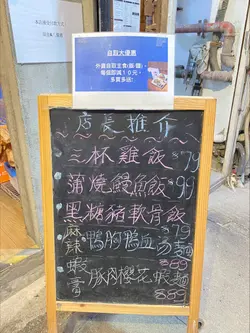 自取大優惠
外賣自取主食(飯/麵)
每個即減10元,
多買多送!
店長推介
三杯雞飯 $79
蒲燒鰻魚飯 $99
黑糖豬軟骨飯
麻辣鴨胸鴨血湯麵 $79
蝦膏豚肉櫻花蝦麵 $89